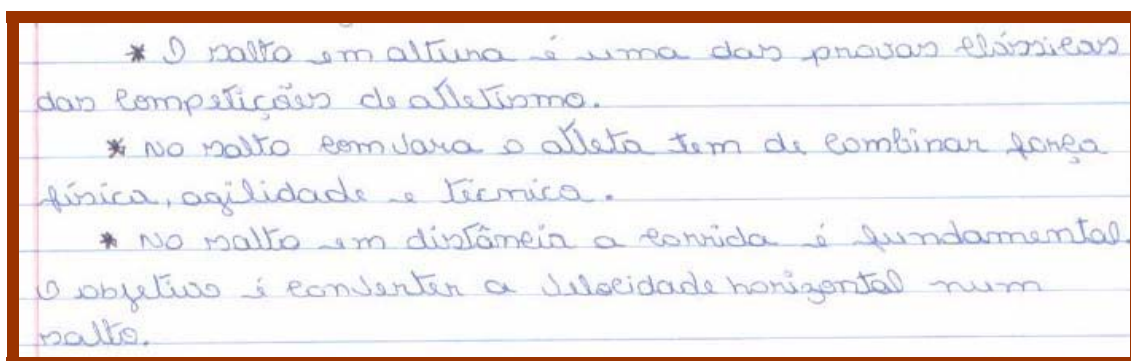 * O salto em altura é uma das provas clássicas
das competições de atletismo.
* No salto com vara o atleta tem de combinar força
física, agilidade e técnica.
* No salto em distância a corrida é fundamental.
O objetivo é converter a velocidade horizontal num
salto.